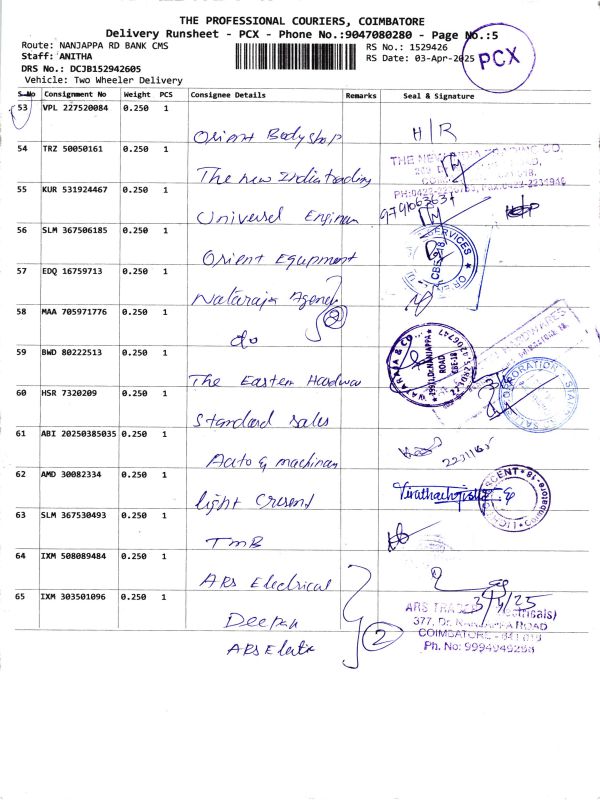 THE PROFESSIONAL COURIERS, COIMBATORE
Delivery Runsheet - PCX - Phone No.:9047080280 - Page No.:5
Route: NANJAPPA RD BANK CMS
RS No.: 1529426
Staff: ANITHA
RS Date: 03-Apr-2025
PCX
DRS No.: DCJB152942605
Vehicle: Two Wheeler Delivery
S-No Consignment No Weight PCS Consignee Details Remarks Seal & Signature
53 VPL 227520084 0.250 1
Orient Bodyshop H/R
54 TRZ 50050161 0.250 1
The new India trading
55 KUR 531924467 0.250 1
Universel Engineer
56 SLM 367506185 0.250 1
Orient Equpment
SERVICES
CBE-18
57 EDQ 16759713 0.250 1
Nataraja Agency
58 MAA 705971776 0.250 1
do 2
59 BWD 80222513 0.250 1
The Eastern Hardwar
NATARAJA & CO
DR.NANJAPPA
ROAD
CBE-18
HARDWARES
60 HSR 7320209 0.250 1
Standard sales
CORPORATION
61 ABI 20250385035 0.250 1
Auto & machinary
62 AMD 30082334 0.250 1
light Cresent
63 SLM 367530493 0.250 1
TMB
64 IXM 508089484 0.250 1
ARS Electrical
65 IXM 303501096 0.250 1
Deepan
ARS Elect
2
3/4/25
377, Dr. NANJAPPA ROAD
COIMBATORE - 641 018
Ph. No: 9994949298